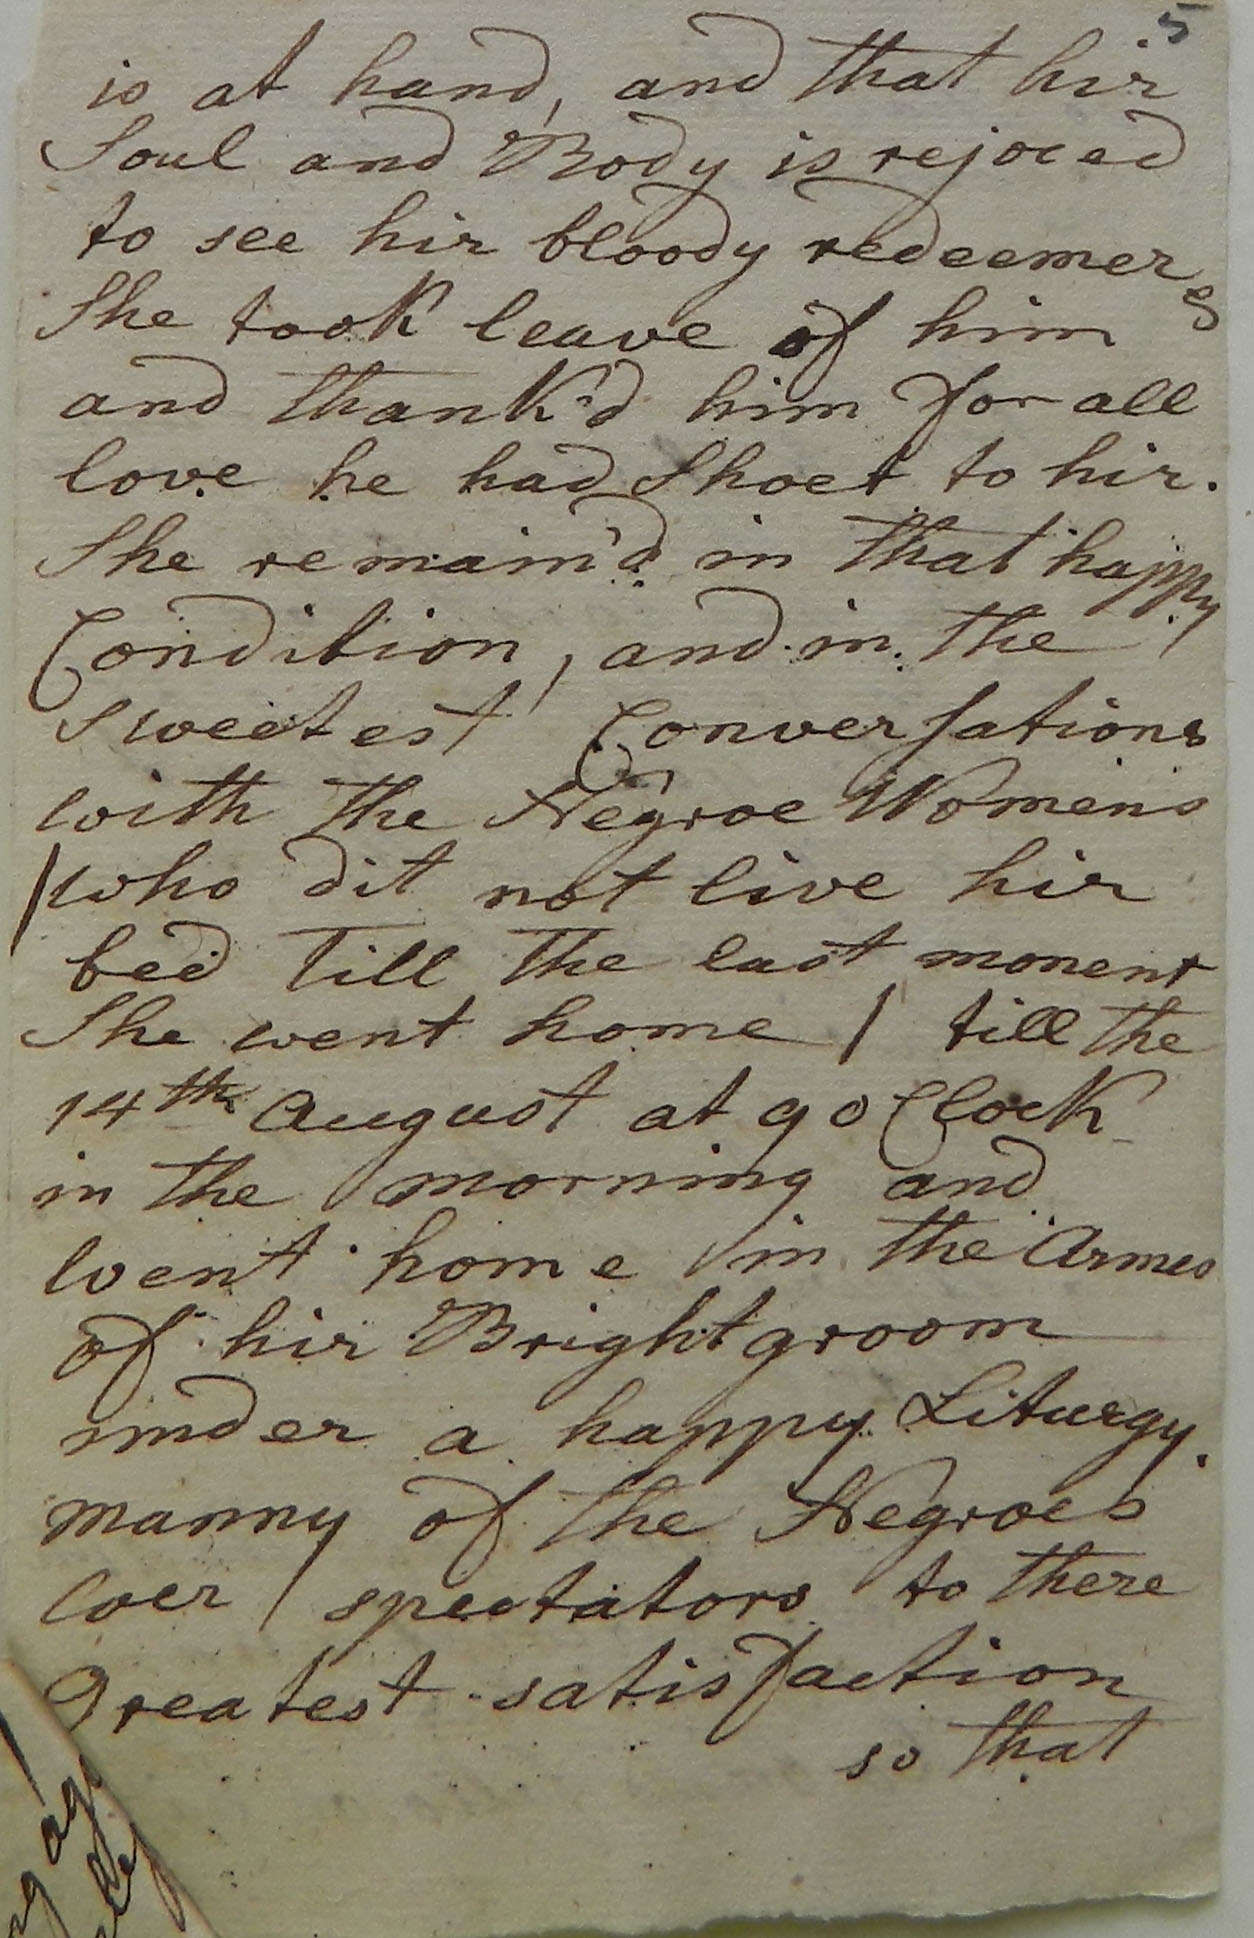 5
is at hand, and that hir
Soul and Body is rejoced
to see hir bloody redeemer,
She took leave of him &
and thank'd him for all
love he had Shoet to hir.
She remain'd in that happy
Condition, and in the
sweetest Conversations
with the Negroe Womens
/who dit not live hir
bed till the last moment
She went home / till the
14th August at 9 o Clock
in the morning and
went home in the Armes
of hir Brightgroom
under a happy Liturgy.
manny of the Negroes
wer spectators to there
Greatest satisfaction
so that